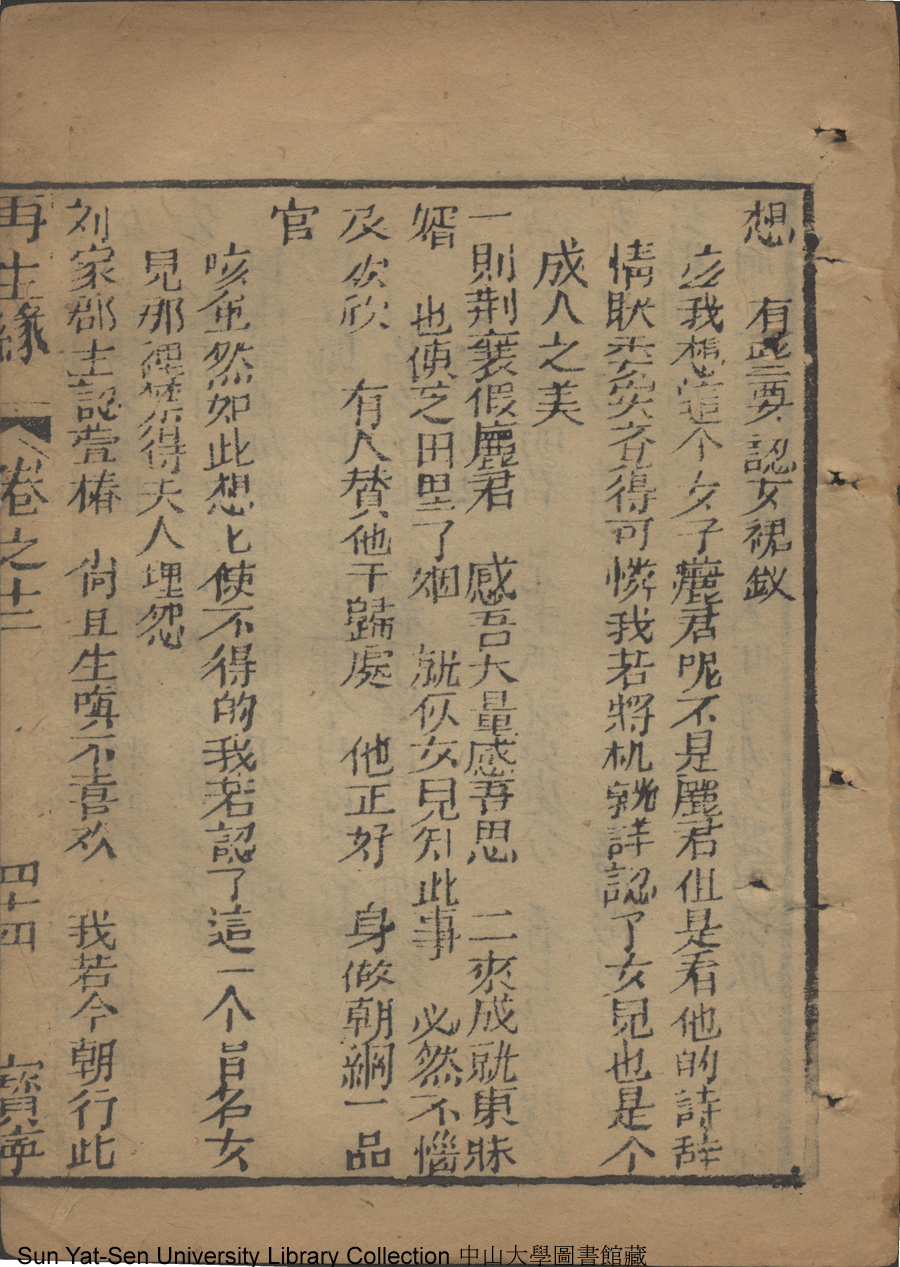 想　有些要認女裙釵
亥我想這个女子麗君呢不是麗君但是看他的詩辞
情耿委实竟得可憐我若將机就詳認了女兒也是个
成人之美
一則荆襄假麗君　感吾大量感吾恩　二來成就東床
婿　也使芝田罢了姻　就似女兒知此事　必然不惱
及欢欣　有人賛他干歸處　他正好　身做朝綱一品
官
咳虽然如此想匕使不得的我若認了這一个冒名女
見那裡禁得夫人埋怨
刘家郡主認萱椿　尚且生嗔不喜欢　我若今朝行此
再生緣　卷之十二　四十四　寳寧
Sun Yat-Sen University Library Collection 中山大學圖書館藏